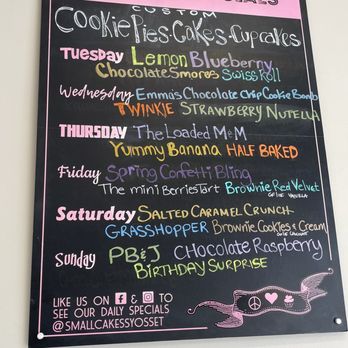 SPECIALS
CUSTOM
COOKIE PIES•CAKES•CUPCAKES
TUESDAY Lemon Blueberry
Chocolate Smores Swiss Roll
Wednesday Emma's Chocolate Chip Cookie Bomb
TWINKIE STRAWBERRY NUTELLA
THURSDAY The Loaded M&M
Yummy Banana HALF BAKED
Friday Spring Confetti Bling
The mini Berries Tart Brownie Red Velvet
Saturday SALTED CARAMEL CRUNCH
GRASSHOPPER Brownie Cookies & Cream
Sunday PB&J Chocolate Raspberry
BIRTHDAY SURPRISE
LIKE US ON & TO
SEE OUR DAILY SPECIALS
@SMALLCAKESSYOSSET